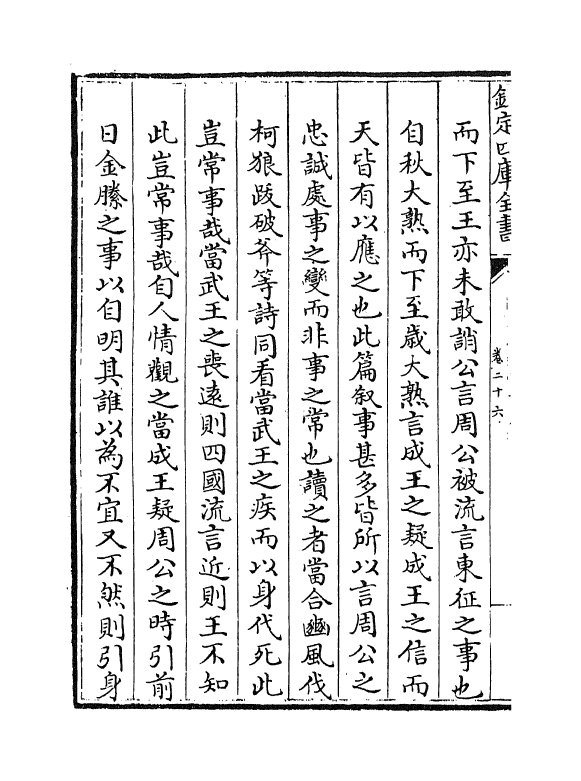 欽定四庫全書
卷二十六
而下至王亦未敢誚公言周公被流言東征之事也
自秋大熟而下至歲大熟言成王之疑成王之信而
天皆有以應之也此篇叙事甚多皆所以言周公之
忠誠處事之變而非事之常也讀之者當合豳風伐
柯狼跋破斧等詩同看當武王之疾而以身代死此
豈常事哉當武王之喪遠則四國流言近則王不知
此豈常事哉自人情觀之當成王疑周公之時引前
日金縢之事以自明其誰以為不宜又不然則引身